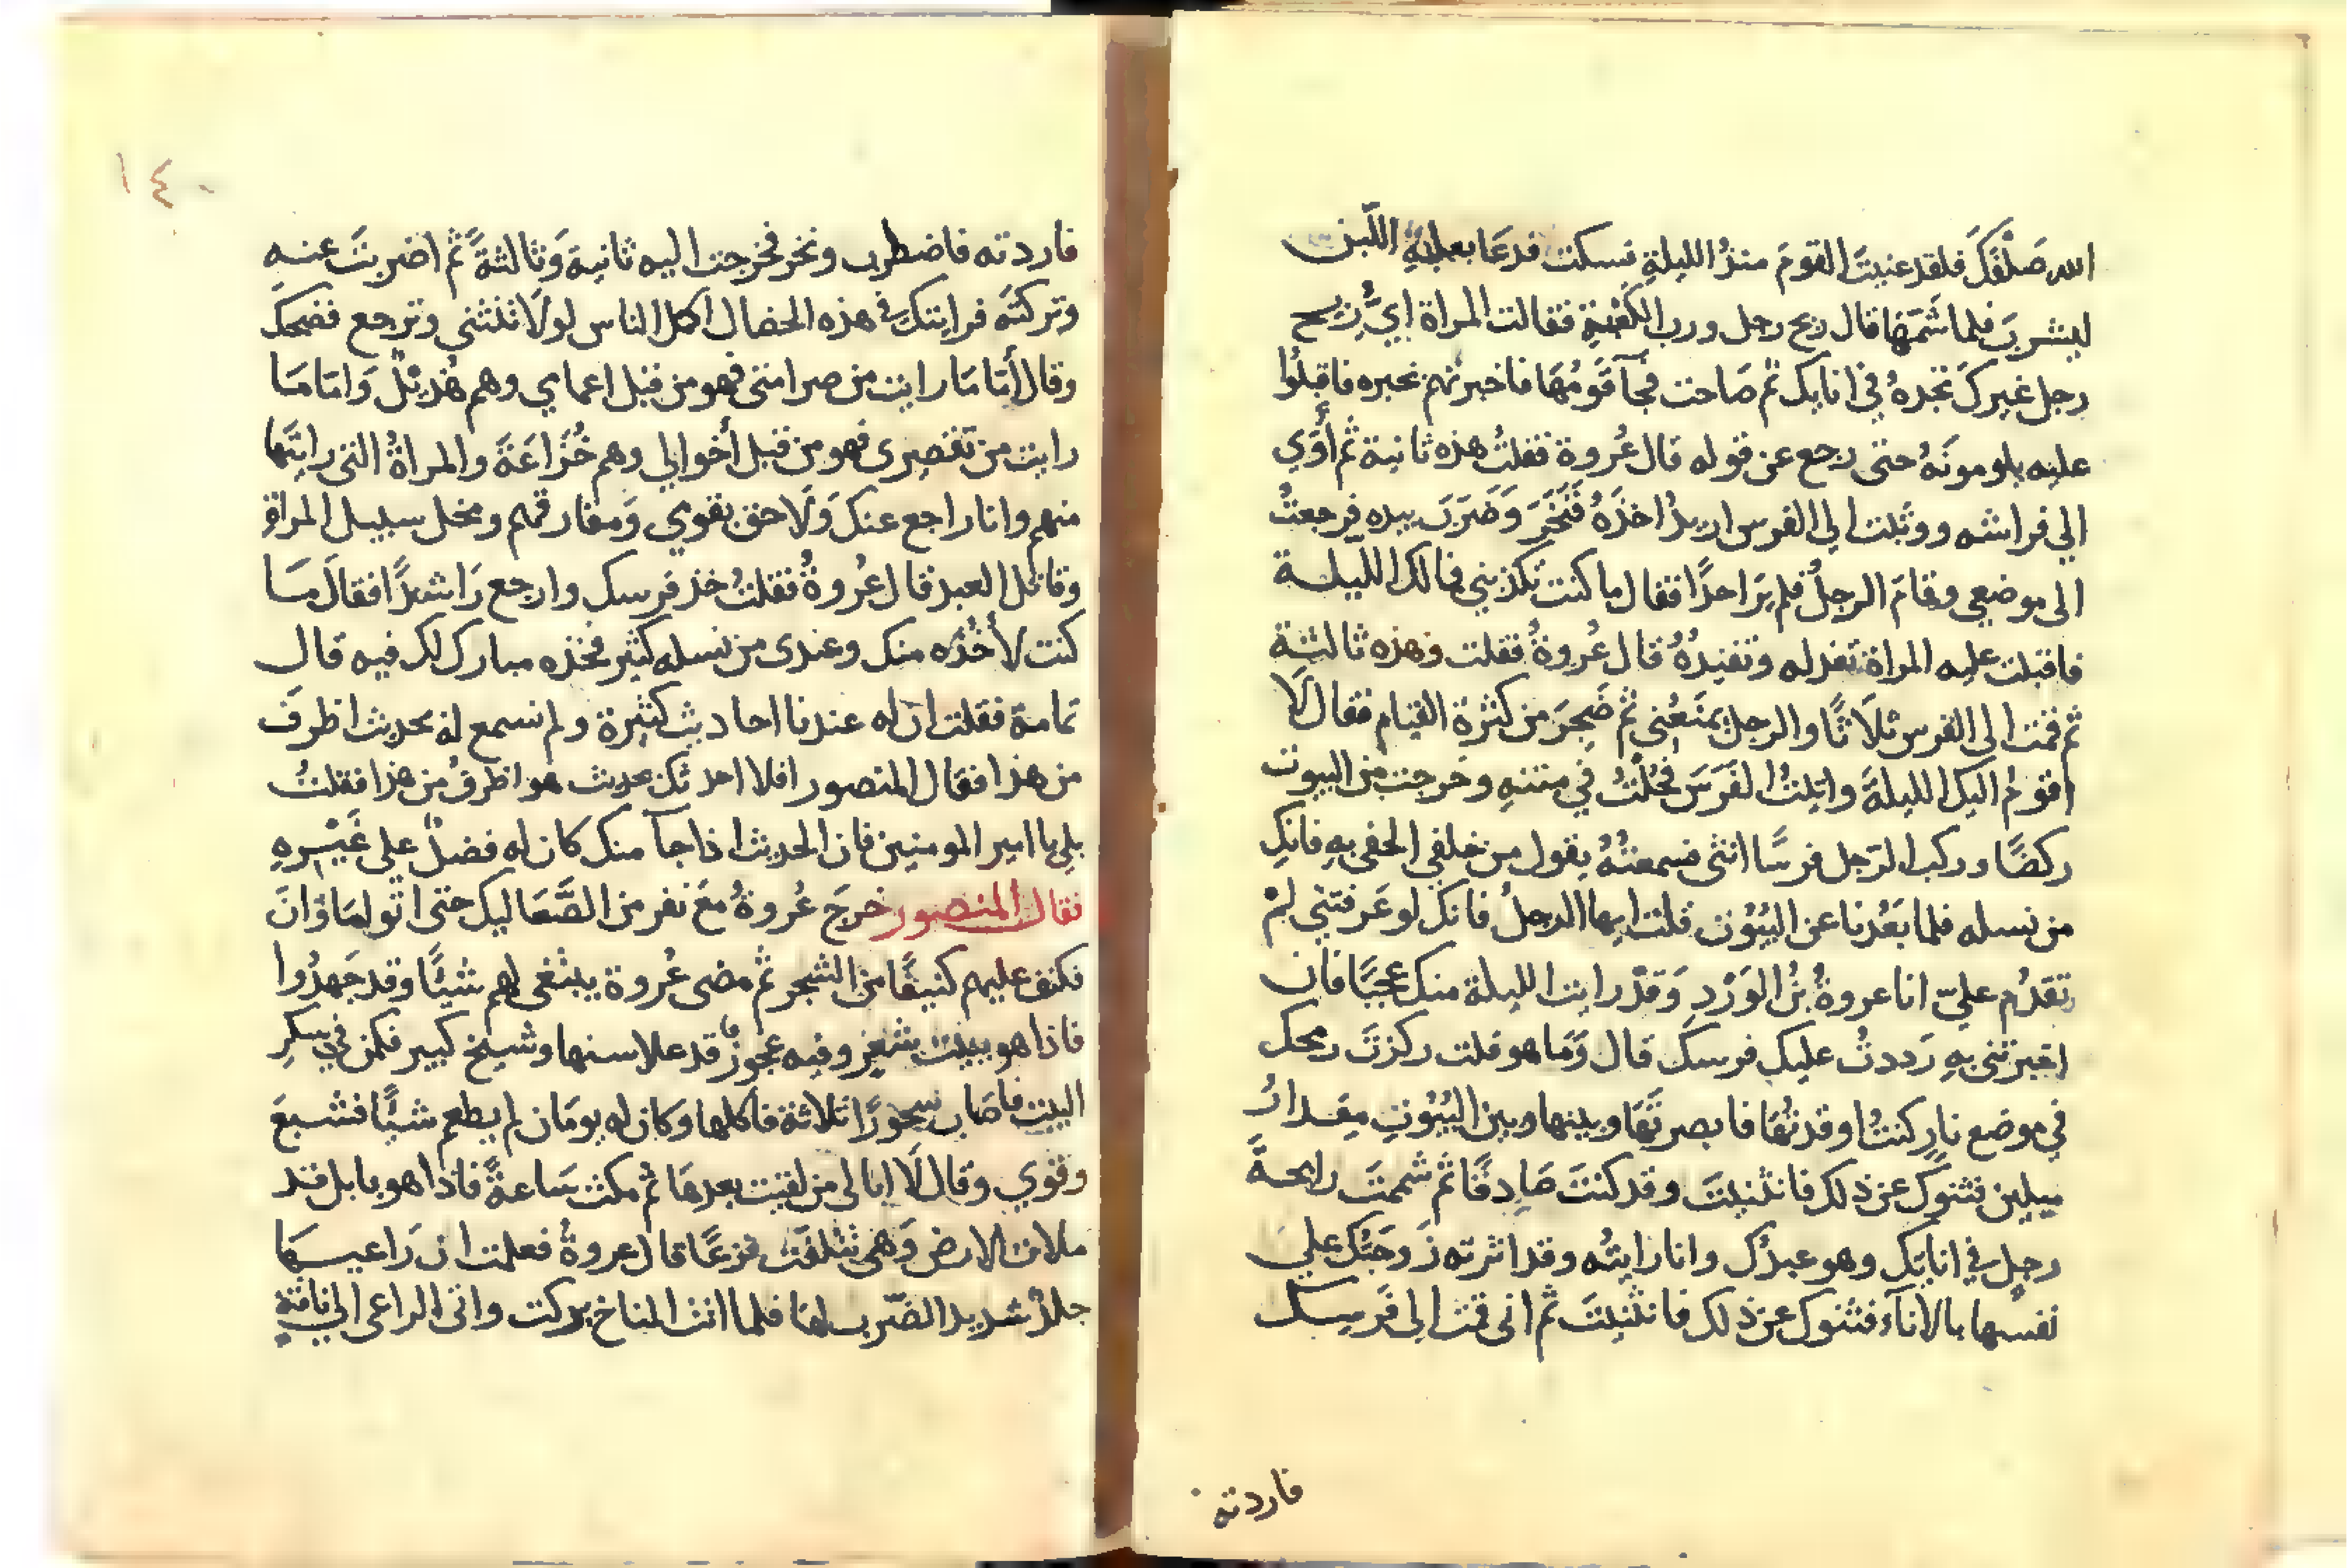 الله صَلْفَكَ فلقد عنيتَ القومَ منذُ الليلةِ فسكت فدعَا بعلبةِ اللَّبن
ليشربَ فلما شَمَّهَا قال ريح رجل ورب الكعْبَةِ فقالت المراة ايُّ ريح
رجل غيركَ تجدهُ في انايك ثم صَاحت فجآ قَومُهَا فاخبرتهم خبره فاقبلُوا
عليه يلومونَهُ حتى رجع عن قوله قال عُروة فقلتُ هذه ثانية ثم أَوَي
الي فراشه ووثبت الي الفرس اريدُ اخذَهُ فَنَخَرَ وَضَرَبَ بيده فرجعتُ
الى موضعي وقامَ الرجلُ فلم يَرَ احدًا فقال ما كنت تكذبني فمالك الليلة
فاقبلت عليه المراة تعذله وتفنِدُهُ قال عُروةُ فقلت وهذه ثالثة
ثم قمت الى الفرس ثلاَثًا والرجل يمنَعُنِي ثم ضَجِرَ من كثرة القيام فقال لَا
اقومُ اليك الليلةَ واتيتُ الفَرَسَ فجُلْتُ في متنهِ وخرجت من البيوت
ركضًا وركب الرّجل فرسًا انثى فسمعتُهُ يقول من خلفي الحقي بهِ فانكِ
من نسله فلما بَعُدنا عن البُيُوت قلت ايها الرجلُ فانك لو عَرفتني لمْ
تقدُم عليّ انا عروةُ بنُ الوَرْدِ وَقدْ رايت الليلة منك عجبًا فان
اخبرتني بهِ رَددتُ عليك فرسك قال وَمَا هو قلت ركزتَ رمحك
في موضع نارٍ كنتُ اوقدتُهَا فابصرتَهَا وبينها وبين البُيُوتِ مِقدارُ
ميلين فثنوك عن ذلك فانثنيتَ وقد كنتَ صَادِقًا ثم شممتَ رايحةَ
رجلٍ في انايَك وهو عبدُك وانا رايتُه وقد اثرته زَوجَتُك عليَ
نفسها بالاناء فثنوك عن ذلك فانثنيتَ ثم اني قمت الي فَرسِك
فاردته
١٤٠
فاردته فاضطرب ونخر فخرجت اليه ثانيةَ وَثالثةً ثم اضربتَ عنهِ
وتركتَه فرايتك في هذه الخصال اكمل الناس لولَا تنثني وترجع فضحك
وقال أمّا مَا رايت من صرامتي فهو من قبل اعمامي وهم هُذيْلٌ وَامّا مَا
رايت من تقصيري فهو من قبل أخوالي وهم خُزَاعَةَ والمراةُ التي رايتَها
منهم وانا راجع عنك وَلَاحق بقومي وَمفارقهم ومخل سبيل المراة
وقاتل العبد قال عُروةُ فقلتُ خذ فرسك وارجع رَاشدًا فقالَ مَا
كنت لأخذُه منك وعندي من نسله كثير فخذه مبارك لك فيه قال
تمامة فقلت ان له عندنا احاديث كثيرة ولم نسمع له بحديث اظرفَ
من هذا فقال المنصور افلا احدثك بحديث هو اظرفُ من هذا فقلتُ
بلي يا امير المومنين فان الحديث اذا جآ منك كان له فضلٌ علي غَيْرِهِ
فقال المنصور خرجَ عُروةُ معَ نفر من الصَّعَاليك حتى اتَو لماوَانَ
فكنف عليهم كنيفًا من الشجر ثم مضى عُروة يبتغي لهم شيئًا وقد جَهِدُوا
فاذا هو ببيت شَعرٍ وفيه عجوزٌ قد علا سنها وشيخ كبير فكمن في كِسْرِ
البيت فاصَاب سحورًا ثلاثة فاكلها وكان له يومَان لم يطعم شيئًا فشبعَ
وقوي وقال لَا ابالي من لقيت بعدهَا ثم مكث سَاعةً فاذا هو بابل قد
ملات الارض وَهي تتلفت فزعًا قال عروةُ فعلمت ان رَاعيهَا
جلدٌ شديد الضَّرب لها فلما اتت المناخ بركت واتي الراعي الي ناقةٍ